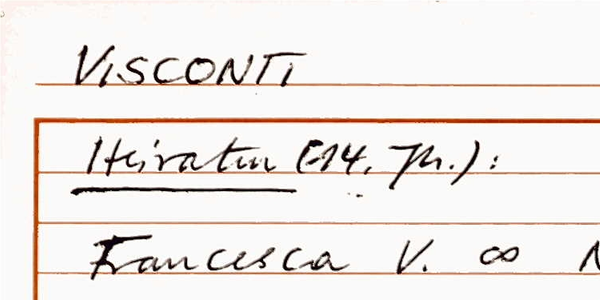 VISCONTI
Heiraten (14. Jh.):
Francesca V. ∞